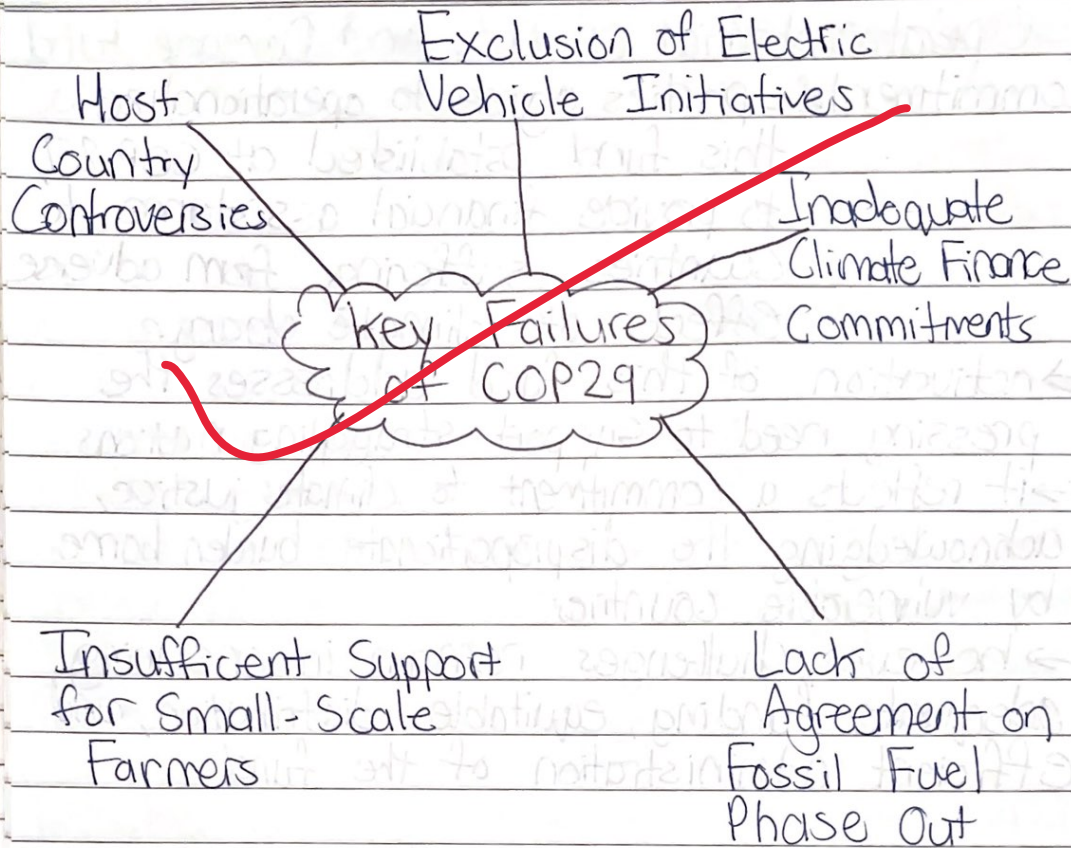 Exclusion of Electric
Vehicle Initiatives
Host
Country
Controversies
Inadequate
Climate Finance
Commitments
Key Failures
of COP29
Insufficent Support
for Small-Scale
Farmers
Lack of
Agreement on
Fossil Fuel
Phase Out